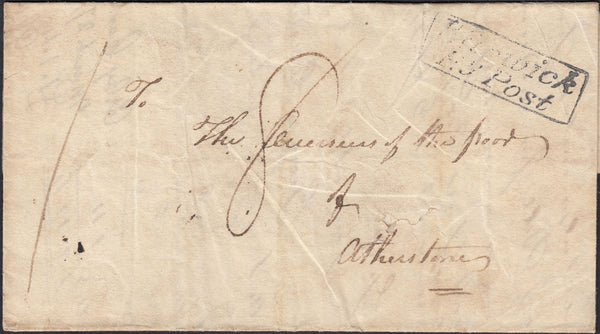 Warwick
Py Post
To
The Overseers of the poor
8
of
Atherstone